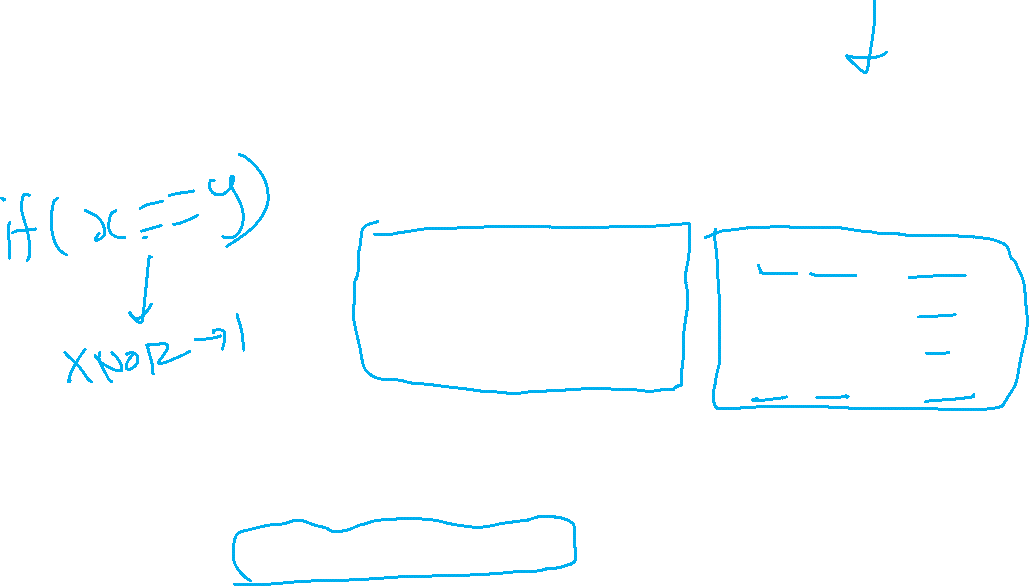 if(x==y)
XNOR→1